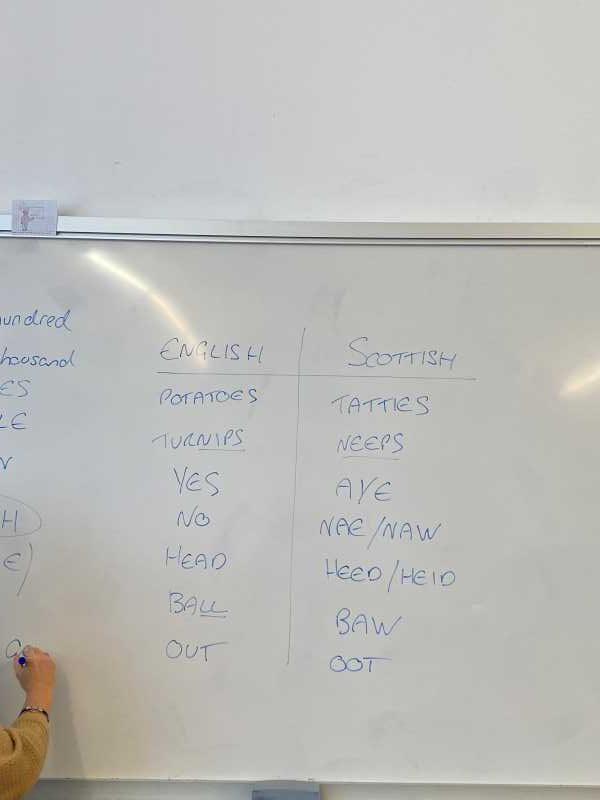 hundred
thousand
ENGLISH SCOTTISH
POTATOES TATTIES
TURNIPS NEEPS
YES AYE
NO NAE/NAW
HEAD HEED/HEID
BALL BAW
OUT OOT